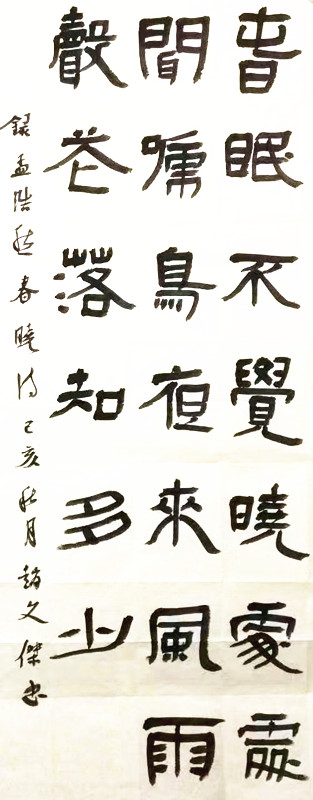 旾眠不覺曉處處
聞嗁鳥夜來風雨
聲花落知多少
錄孟浩然春曉詩己亥秋月趙文傑書